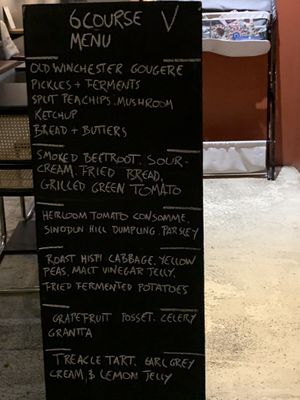 6 COURSE V
MENU
OLD WINCHESTER GOUGERE
PICKLES + FERMENTS
SPLIT PEA CHIPS. MUSHROOM
KETCHUP
BREAD + BUTTERS
SMOKED BEETROOT. SOUR-
CREAM. FRIED BREAD.
GRILLED GREEN TOMATO
HEIRLOOM TOMATO CONSOMME.
SINODUN HILL DUMPLING. PARSLEY
ROAST HISPI CABBAGE. YELLOW
PEAS. MALT VINEGAR JELLY.
FRIED FERMENTED POTATOES
GRAPEFRUIT POSSET. CELERY
GRANITA
TREACLE TART. EARL GREY
CREAM, & LEMON JELLY